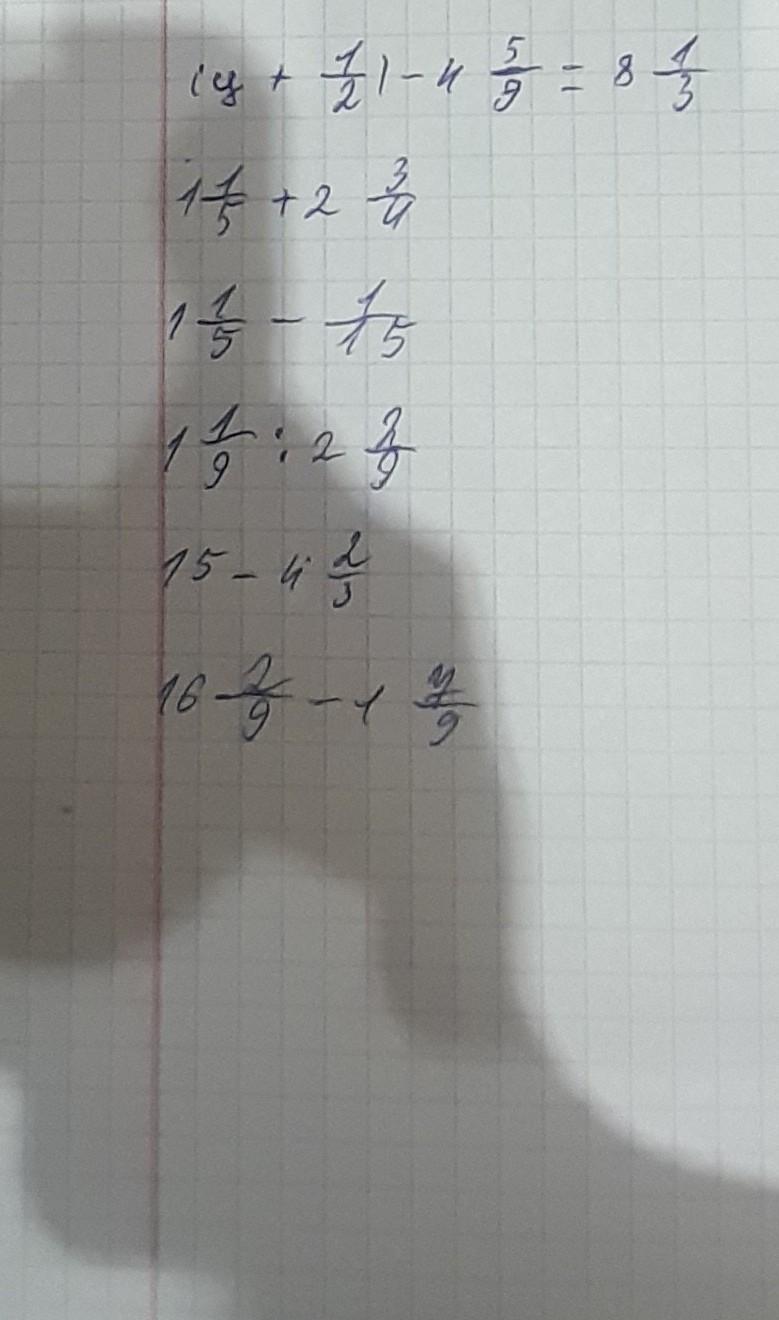 (y + 1/2) - 4 5/9 = 8 1/3
1 1/5 + 2 3/4
1 1/5 - 1/15
1 1/9 : 2 2/9
15 - 4 2/3
16 2/9 - 1 7/9